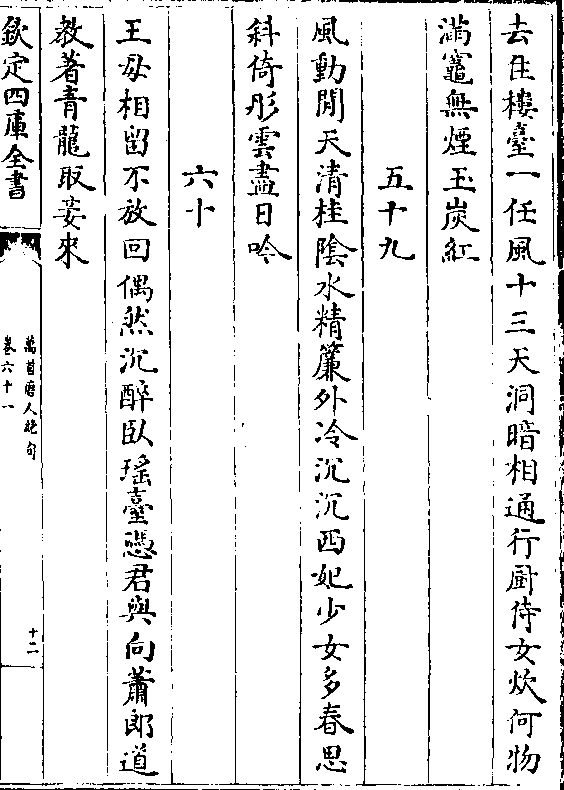 去住樓臺一任風十三天洞暗相通行厨侍女炊何物
滿竈無煙玉炭紅
五十九
風動閒天清桂陰水精簾外冷沉沉西妃少女多春思
斜倚彤雲盡日吟
六十
王母相留不放回偶然沉醉臥瑶臺憑君與向蕭郎道
教著青龍取妾來
欽定四庫全書
萬首唐人絶句
卷六十一
十二